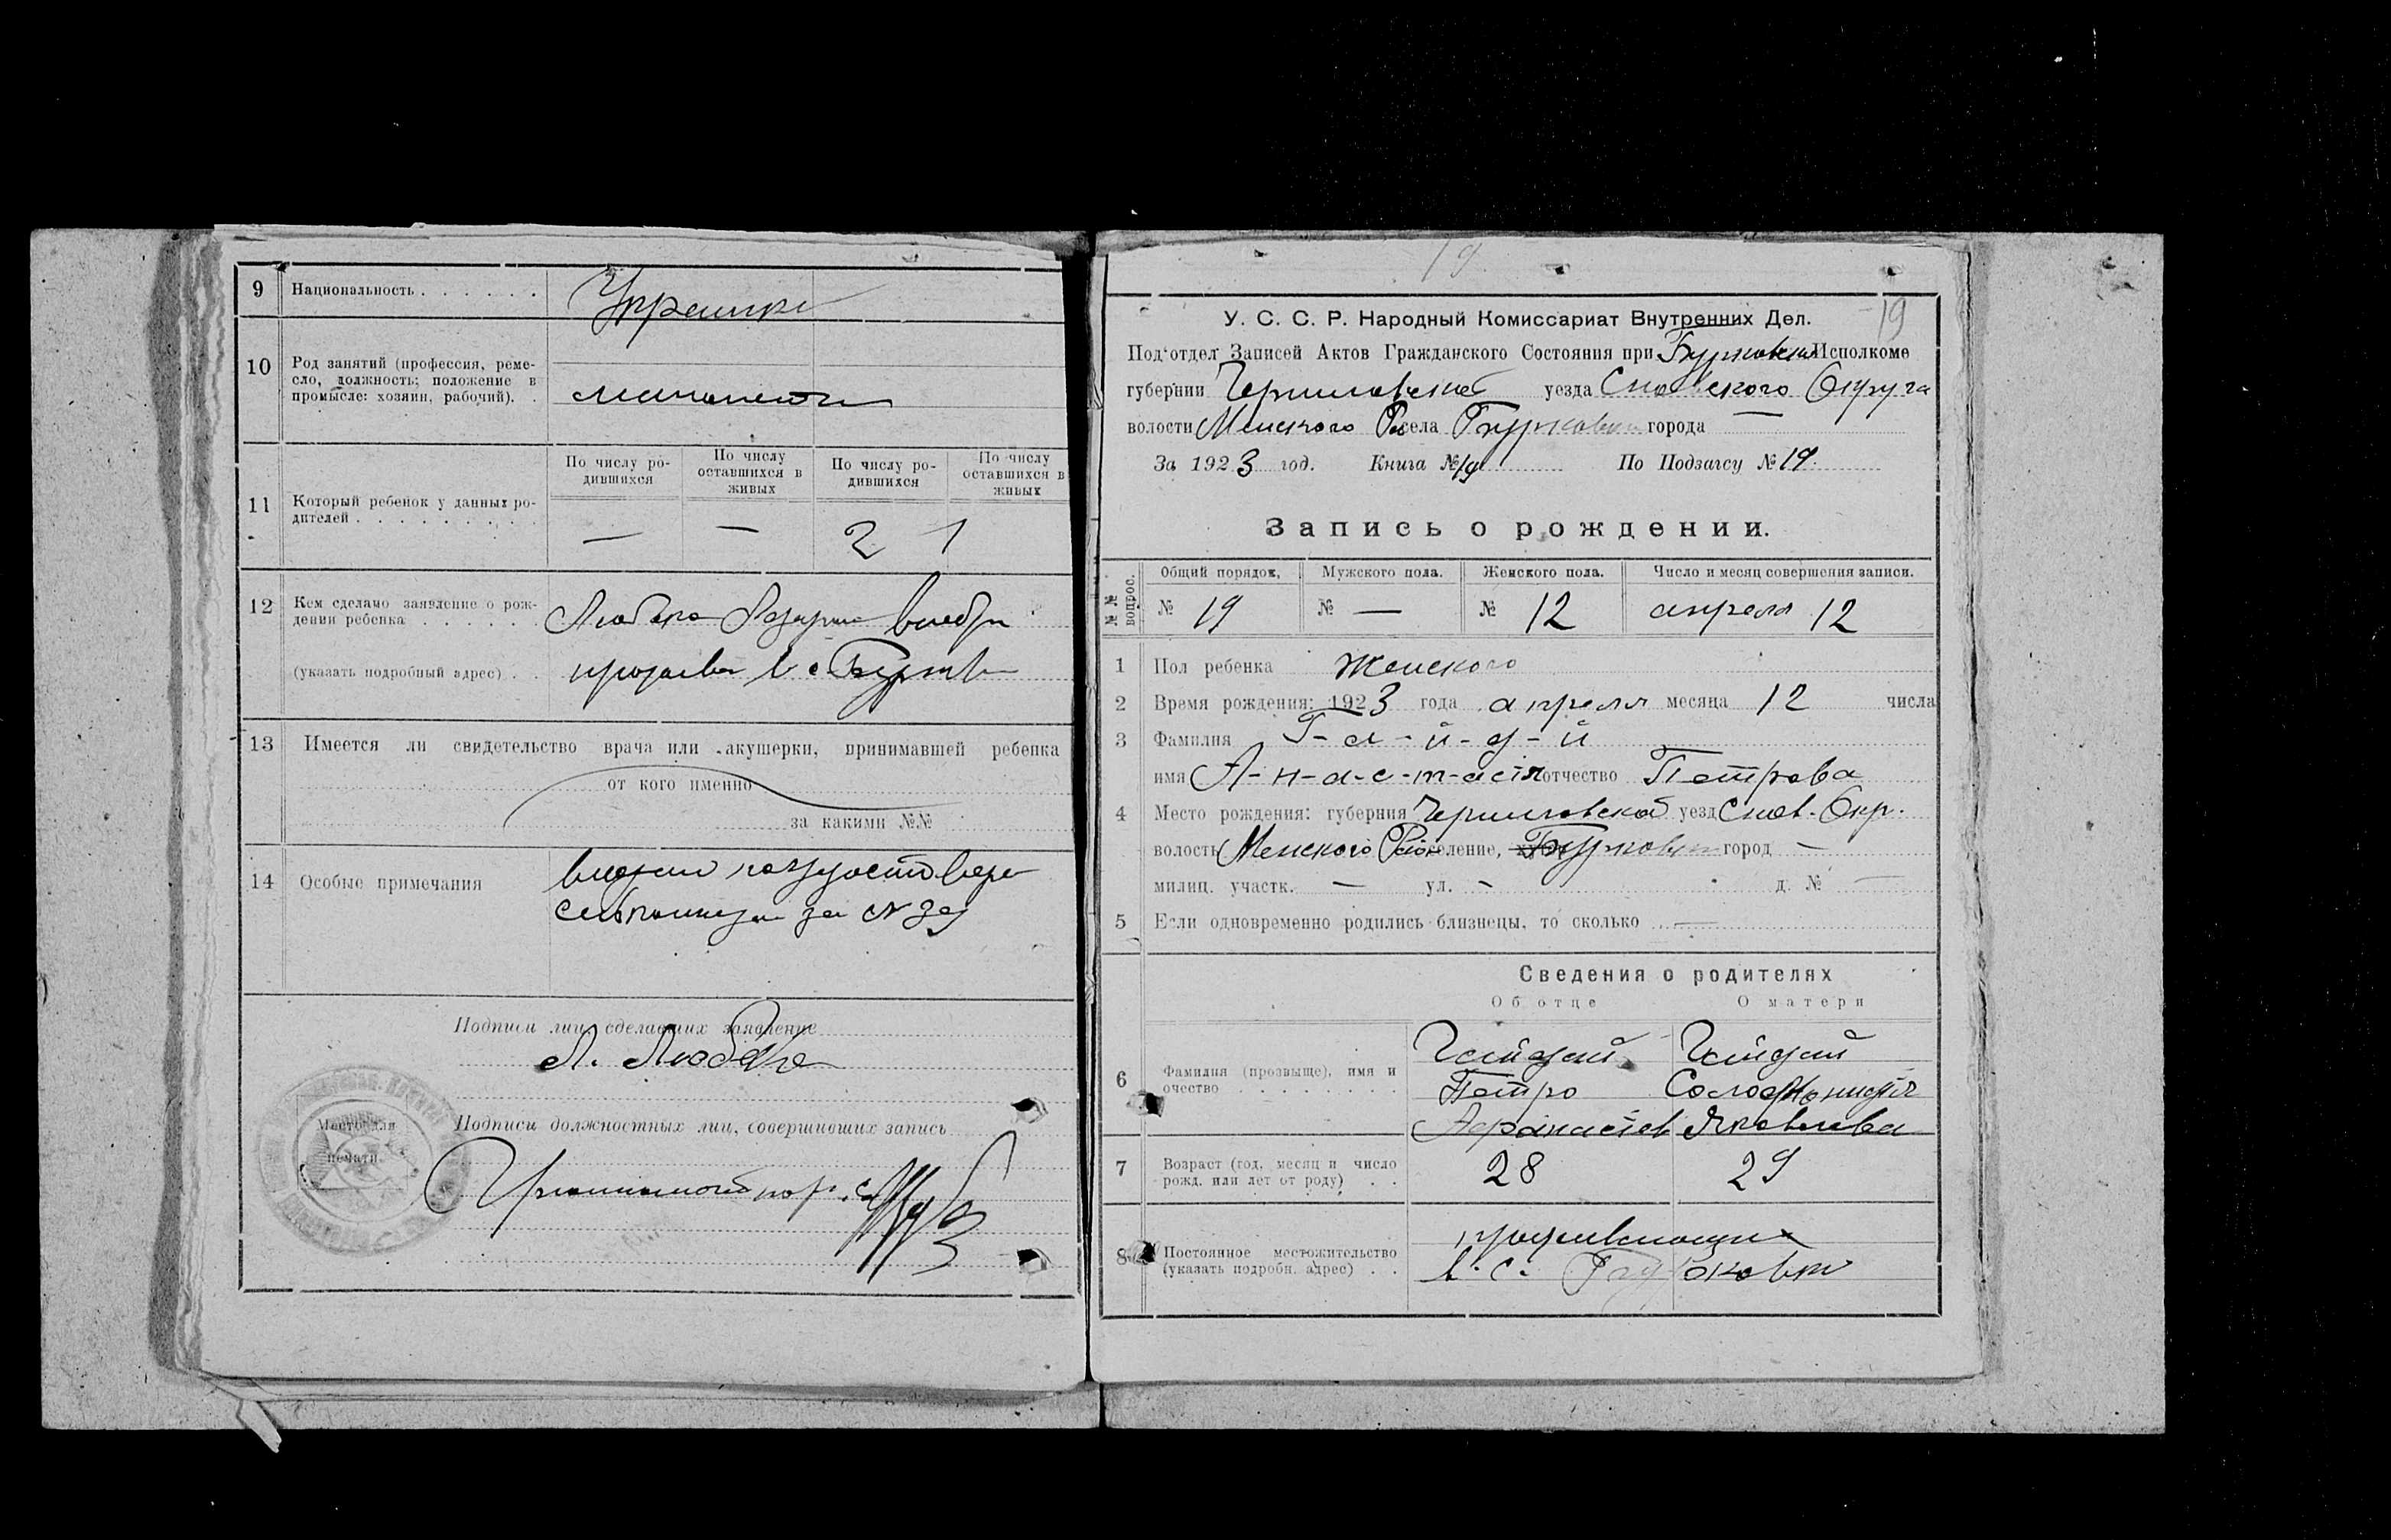 9 Национальность . . . . . .
10 Род занятий (профессия, реме-
сло, должность; положение в
промысле: хозяин, рабочий). .
11 Который ребенок у данных ро-
дителей . . . . . . . . . .
По числу ро-
дившихся
По числу
оставшихся в
живых
По числу ро-
дившихся
По числу
оставшихся в
живых
— — 2 1
12 Кем сделано заявление о рож-
дении ребенка . . . . . . Любака
(указать подробный адрес) . . в с.
13 Имеется ли свидетельство врача или акушерки, принимавшей ребенка
от кого именно
за какими №№
14 Особые примечания
за № 39
Подписи лиц, сделавших заявление
Л. Любака
Подписи должностных лиц, совершивших запись
Место для
печати.
19
19
У. С. С. Р. Народный Комиссариат Внутренних Дел.
Под'отдел Записей Актов Гражданского Состояния при Бурковском Исполкоме
губернии Черниговской уезда Сновского Округа
волости Менского Ра села Бурковки города —
За 1923 год. Книга № 19 По Подзагсу № 19.
Запись о рождении.
№№ вопрос.
Общий порядок, Мужского пола. Женского пола. Число и месяц совершения записи.
№ 19 № — № 12 апреля 12
1 Пол ребенка Женского
2 Время рождения: 1923 года апреля месяца 12 числа
3 Фамилия Г-а-й-д-й
имя А-н-а-с-т-асія отчество Петрова
4 Место рождения: губерния Черниговской уезд Снов. Окр.
волость Менского Рай селение, Бурковки город —
милиц. участк. — ул. — д. № —
5 Если одновременно родились близнецы, то сколько —
Сведения о родителях
Об отце О матери
6 Фамилия (прозвище), имя и
очество . . . . . . . .
Гайдай Гайдай
Петро Соломонидія
Афанасіев Яковлева
7 Возраст (год, месяц и число
рожд. или лет от роду) . .
28 29
8 Постоянное местожительство
(указать подробн. адрес) . .
проживающих
в. с. Бурковки